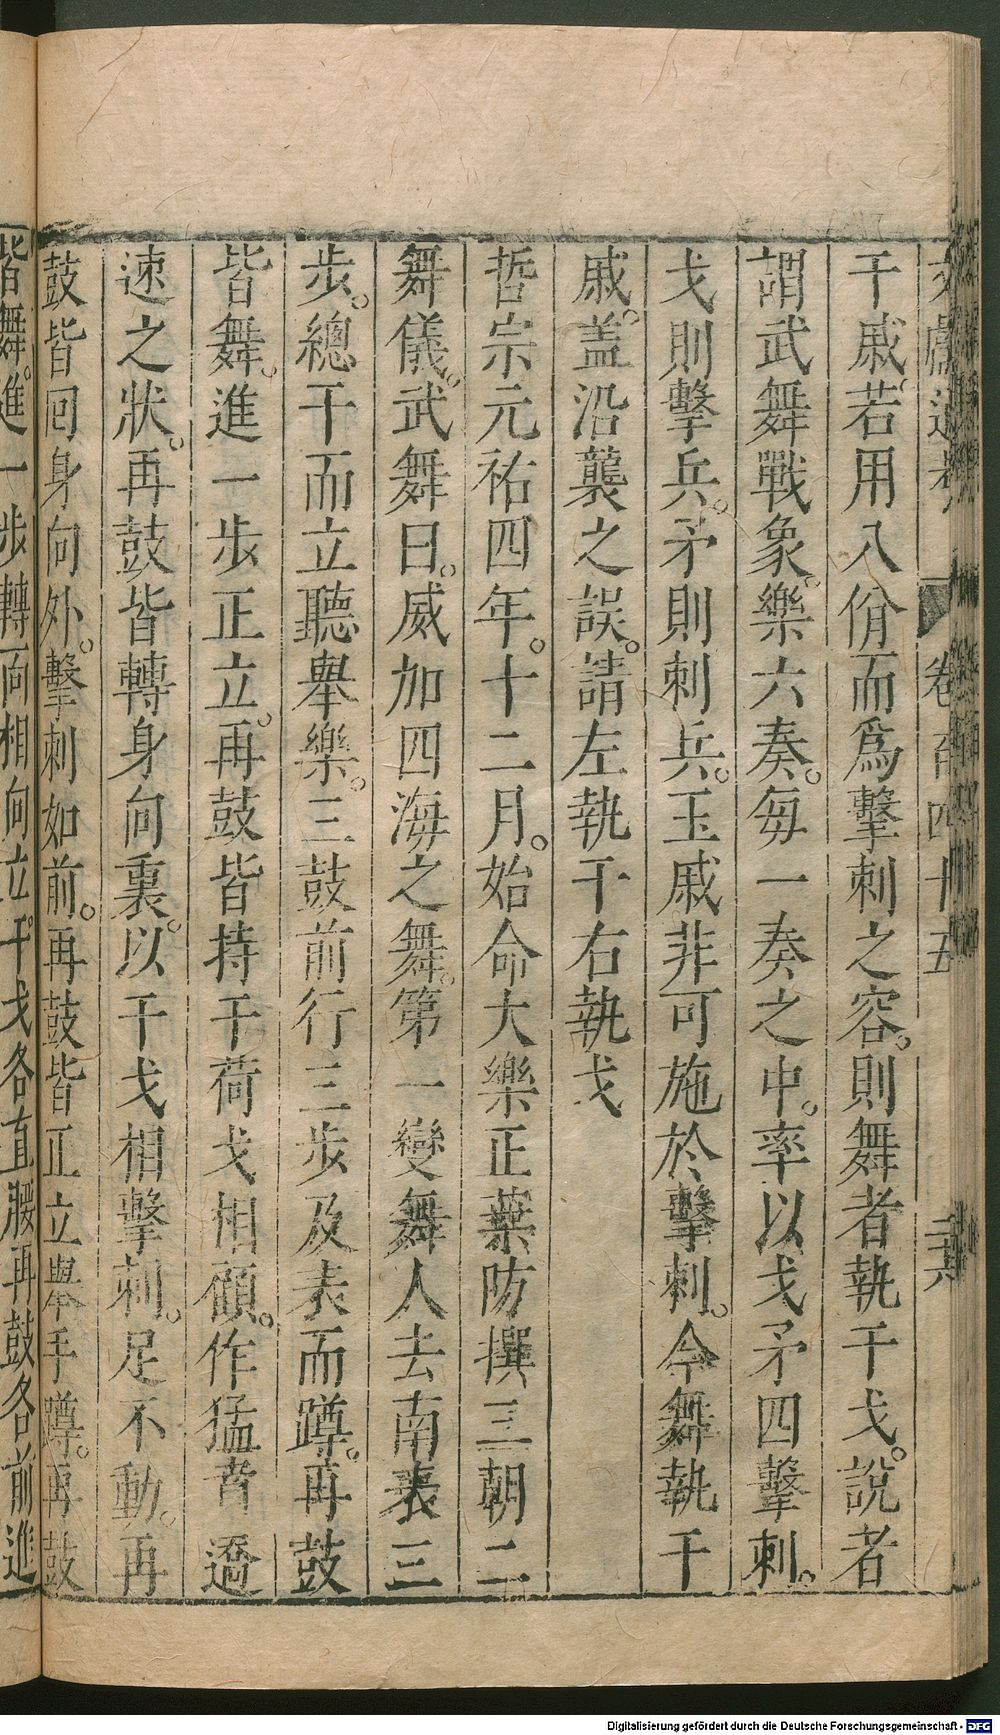 文獻通考 卷百四十五 二六
干戚若用八佾而爲擊刺之容。則舞者執干戈。說者
謂武舞戰象。樂六奏。每一奏之中。率以戈矛四擊刺。
戈則擊兵。矛則刺兵。玉戚非可施於擊刺。今舞執干
戚。蓋沿襲之誤。請左執干右執戈
哲宗元祐四年。十二月。始命大樂正葉防撰三朝二
舞儀。武舞曰。威加四海之舞。第一變舞人去南表三
步。總干而立聽舉樂。三鼓前行三步及表而蹲。再鼓
皆舞。進一步正立。再鼓皆持干荷戈相顧。作猛賁遒
速之狀。再鼓皆轉身向裏。以干戈相擊刺。足不動。再
鼓皆回身向外。擊刺如前。再鼓皆正立舉手蹲。再鼓
皆舞。進一步轉面相向立。干戈各直腰再鼓各前進
Digitalisierung gefördert durch die Deutsche Forschungsgemeinschaft - DFG